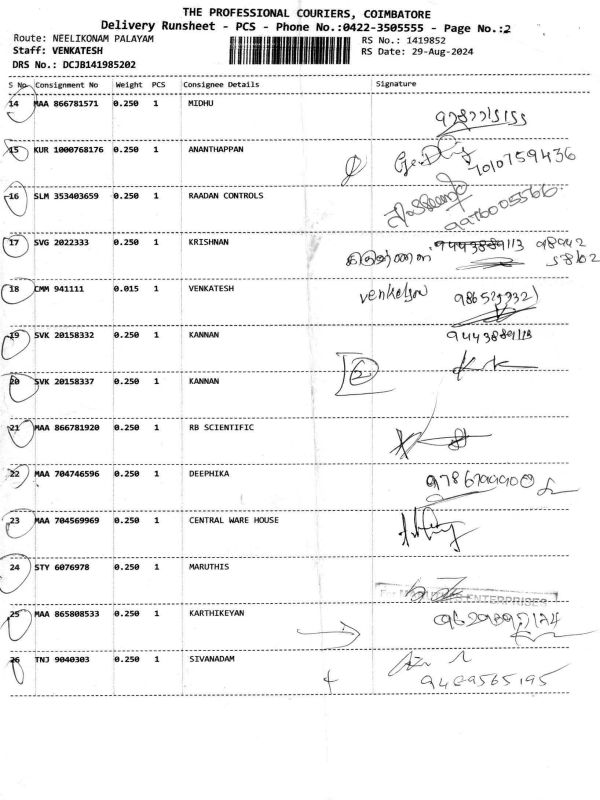 THE PROFESSIONAL COURIERS, COIMBATORE
Delivery Runsheet - PCS - Phone No.:0422-3505555 - Page No.:2
Route: NEELIKONAM PALAYAM
RS No.: 1419852
Staff: VENKATESH
RS Date: 29-Aug-2024
DRS No.: DCJB141985202
S No. Consignment No Weight PCS Consignee Details Signature
14 MAA 866781571 0.250 1 MIDHU
15 KUR 1000768176 0.250 1 ANANTHAPPAN
7010759436
16 SLM 353403659 0.250 1 RAADAN CONTROLS
9976005566
17 SVG 2022333 0.250 1 KRISHNAN
18 CMM 941111 0.015 1 VENKATESH
19 SVK 20158332 0.250 1 KANNAN 9443889113
20 SVK 20158337 0.250 1 KANNAN
21 MAA 866781920 0.250 1 RB SCIENTIFIC
22 MAA 704746596 0.250 1 DEEPHIKA
23 MAA 704569969 0.250 1 CENTRAL WARE HOUSE
24 STY 6076978 0.250 1 MARUTHIS
ENTERPRISES
25 MAA 865808533 0.250 1 KARTHIKEYAN
26 TNJ 9040303 0.250 1 SIVANADAM
9489565195